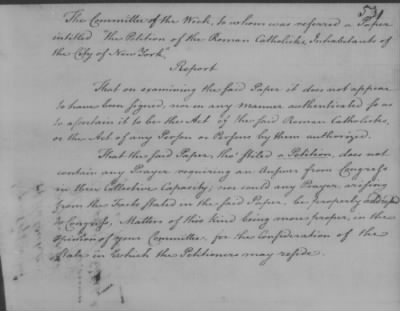 531
The Committee of the Week, to whom was referred a Paper
intitled The Petition of the Roman Catholicks, Inhabitants of
the City of New York,
Report
That on examining the said Paper it does not appear
to have been signed, nor in any manner authenticated so as
to ascertain it to be the Act of the said Roman Catholicks,
or the Act of any Person or Persons by them authorized.
That the said Paper, tho' stiled a Petition, does not
contain any Prayer requiring an Answer from Congress
in their Collective Capacity; nor could any Prayer, arising
from the Facts stated in the said Paper, be properly addressed
to Congress, Matters of this kind being more proper, in the
Opinion of your Committee, for the Consideration of the
State in which the Petitioners may reside.